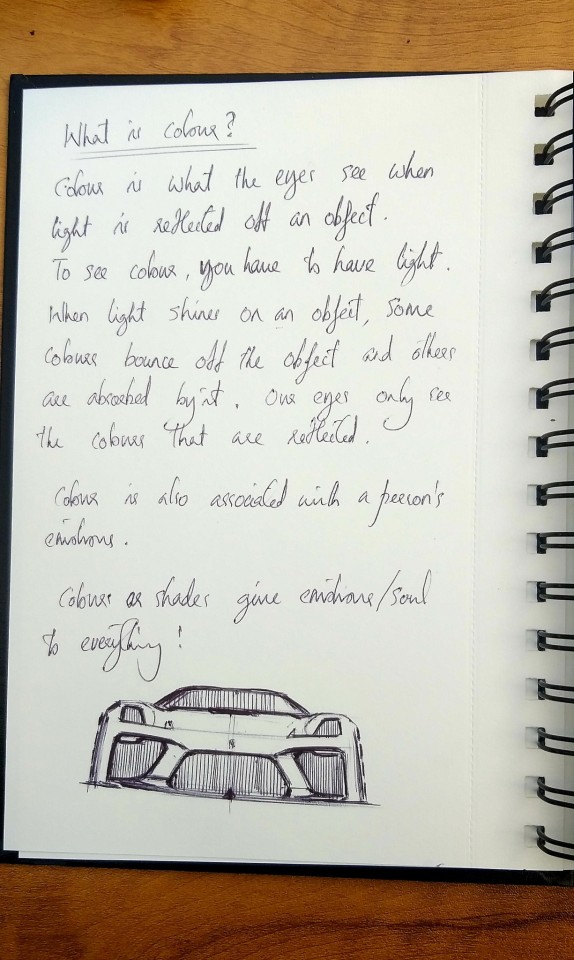 What is colour?
Colour is what the eyes see when
light is reflected off an object.
To see colour, you have to have light.
When light shines on an object, some
colours bounce off the object and others
are absorbed by it. Our eyes only see
the colours that are reflected.
Colour is also associated with a person's
emotions.
Colours or shades give emotions/soul
to everything!